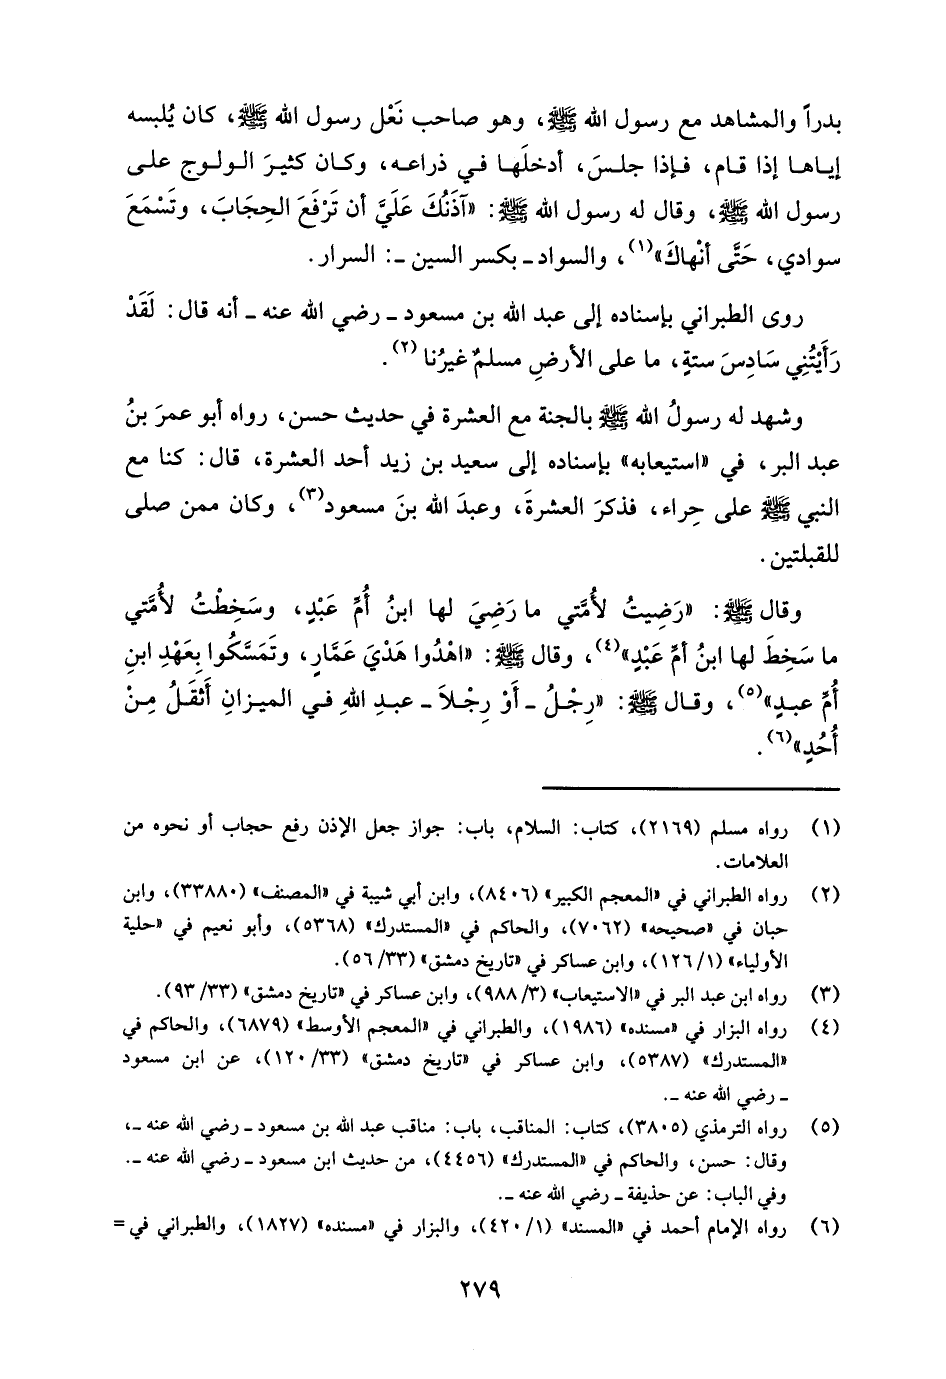 بدراً والمشاهد مع رسول الله ﷺ، وهو صاحب نَعْل رسول الله ﷺ، كان يُلبسه
إياها إذا قام، فإذا جلسَ، أدخلَها في ذراعه، وكان كثيرَ الولوج على
رسول الله ﷺ، وقال له رسول الله ﷺ: «آذَنُكَ عَلَيَّ أن تَرْفَعَ الحِجَابَ، وتَسْمَعَ
سوادي، حَتَّى أنْهاكَ»(١)، والسواد ـ بكسر السين ـ: السرار.
روى الطبراني بإسناده إلى عبد الله بن مسعود ـ رضي الله عنه ـ أنه قال: لَقَدْ
رَأَيْتُنِي سَادِسَ ستةٍ، ما على الأرضِ مسلمٌ غيرُنا (٢).
وشهد له رسولُ الله ﷺ بالجنة مع العشرة في حديث حسن، رواه أبو عمرَ بنُ
عبد البر، في «استيعابه» بإسناده إلى سعيد بن زيد أحد العشرة، قال: كنا مع
النبي ﷺ على حِراء، فذكرَ العشرةَ، وعبدَ الله بنَ مسعود(٣)، وكان ممن صلى
للقبلتين.
وقال ﷺ: «رَضِيتُ لأُمَّتي ما رَضِيَ لها ابنُ أُمِّ عَبْدٍ، وسَخِطْتُ لأُمَّتي
ما سَخِطَ لها ابنُ أمِّ عَبْدٍ»(٤)، وقال ﷺ: «اهْدُوا هَدْيَ عَمَّارٍ، وتَمَسَّكُوا بِعَهْدِ ابنِ
أُمِّ عبدٍ»(٥)، وقال ﷺ: «رِجْلُ ـ أَوْ رِجْلاَ ـ عبدِ اللهِ في الميزانِ أَثْقَلُ مِنْ
أُحُدٍ»(٦).
(١) رواه مسلم (٢١٦٩)، كتاب: السلام، باب: جواز جعل الإذن رفع حجاب أو نحوه من
العلامات.
(٢) رواه الطبراني في «المعجم الكبير» (٨٤٠٦)، وابن أبي شيبة في «المصنف» (٣٣٨٨٠)، وابن
حبان في «صحيحه» (٧٠٦٢)، والحاكم في «المستدرك» (٥٣٦٨)، وأبو نعيم في «حلية
الأولياء» (١/ ١٢٦)، وابن عساكر في «تاريخ دمشق» (٣٣/ ٥٦).
(٣) رواه ابن عبد البر في «الاستيعاب» (٣/ ٩٨٨)، وابن عساكر في «تاريخ دمشق» (٣٣/ ٩٣).
(٤) رواه البزار في «مسنده» (١٩٨٦)، والطبراني في «المعجم الأوسط» (٦٨٧٩)، والحاكم في
«المستدرك» (٥٣٨٧)، وابن عساكر في «تاريخ دمشق» (٣٣/ ١٢٠)، عن ابن مسعود
ـ رضي الله عنه ـ.
(٥) رواه الترمذي (٣٨٠٥)، كتاب: المناقب، باب: مناقب عبد الله بن مسعود ـ رضي الله عنه ـ،
وقال: حسن، والحاكم في «المستدرك» (٤٤٥٦)، من حديث ابن مسعود ـ رضي الله عنه ـ.
وفي الباب: عن حذيفة ـ رضي الله عنه ـ.
(٦) رواه الإمام أحمد في «المسند» (١/ ٤٢٠)، والبزار في «مسنده» (١٨٢٧)، والطبراني في =
٢٧٩